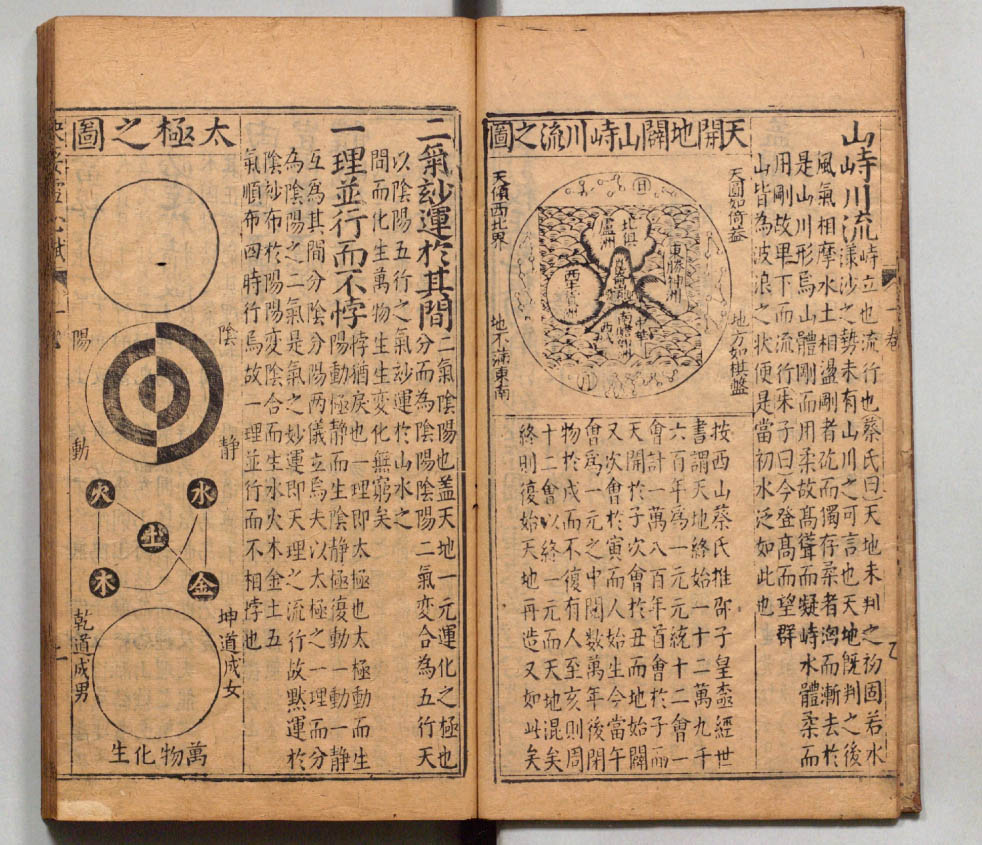 山峙川流峙立也流行也蔡氏曰天地未判之初固若水
漾沙之勢未有山川之可言也天地旣判之後
風氣相摩水土相盪剛者屹而獨存柔者淘而漸去於
是山川形焉山體剛而用柔故高聳而凝峙水體柔而
用剛故卑下而流行朱子曰今登髙而望群
山皆為波浪之状便是當初水泛如此也
天開地闢山峙川流之圖
天圓如倚盖
地方如棋盤
天傾西北界
地不滿東南
日
月
北俱
盧州
東勝神州
西牛
南贍
中華
按西山蔡氏推邵子皇極經世
書謂天地終始一十二萬九千
六百年爲一元元統十二會一
會計一萬八百年首會於子而
天開於子次會於丑而地始闢
又次會於寅而人始生今當午
會爲一元之中閱数萬年後閉
物於戌而不復有人至亥則周
十二會以終一元而天地混矣
終則復始天地再造又如此矣
一卷
二氣玅運於其間二氣陰陽也盖天地一元運化之極也
分而為陰陽陰陽二氣変合為五行天
以陰陽五行之氣玅運於山水之
間而化生萬物生生変化無窮矣
一理並行而不悖悖猶戾也一理即太極也太極動而生
陽動極而靜靜而生陰靜極復動一動一靜
互為其間分陰分陽兩儀立焉夫以太極之一理而分
為陰陽之二氣是氣之妙運即天理之流行故黙運於
陰玅布於陽陽変陰合而生水火木金土五
氣順布四時行焉故一理並行而不相悖也
太極之圖
陰
靜
陽
動
水
火
土
金
木
坤道成女
乾道成男
萬物化生